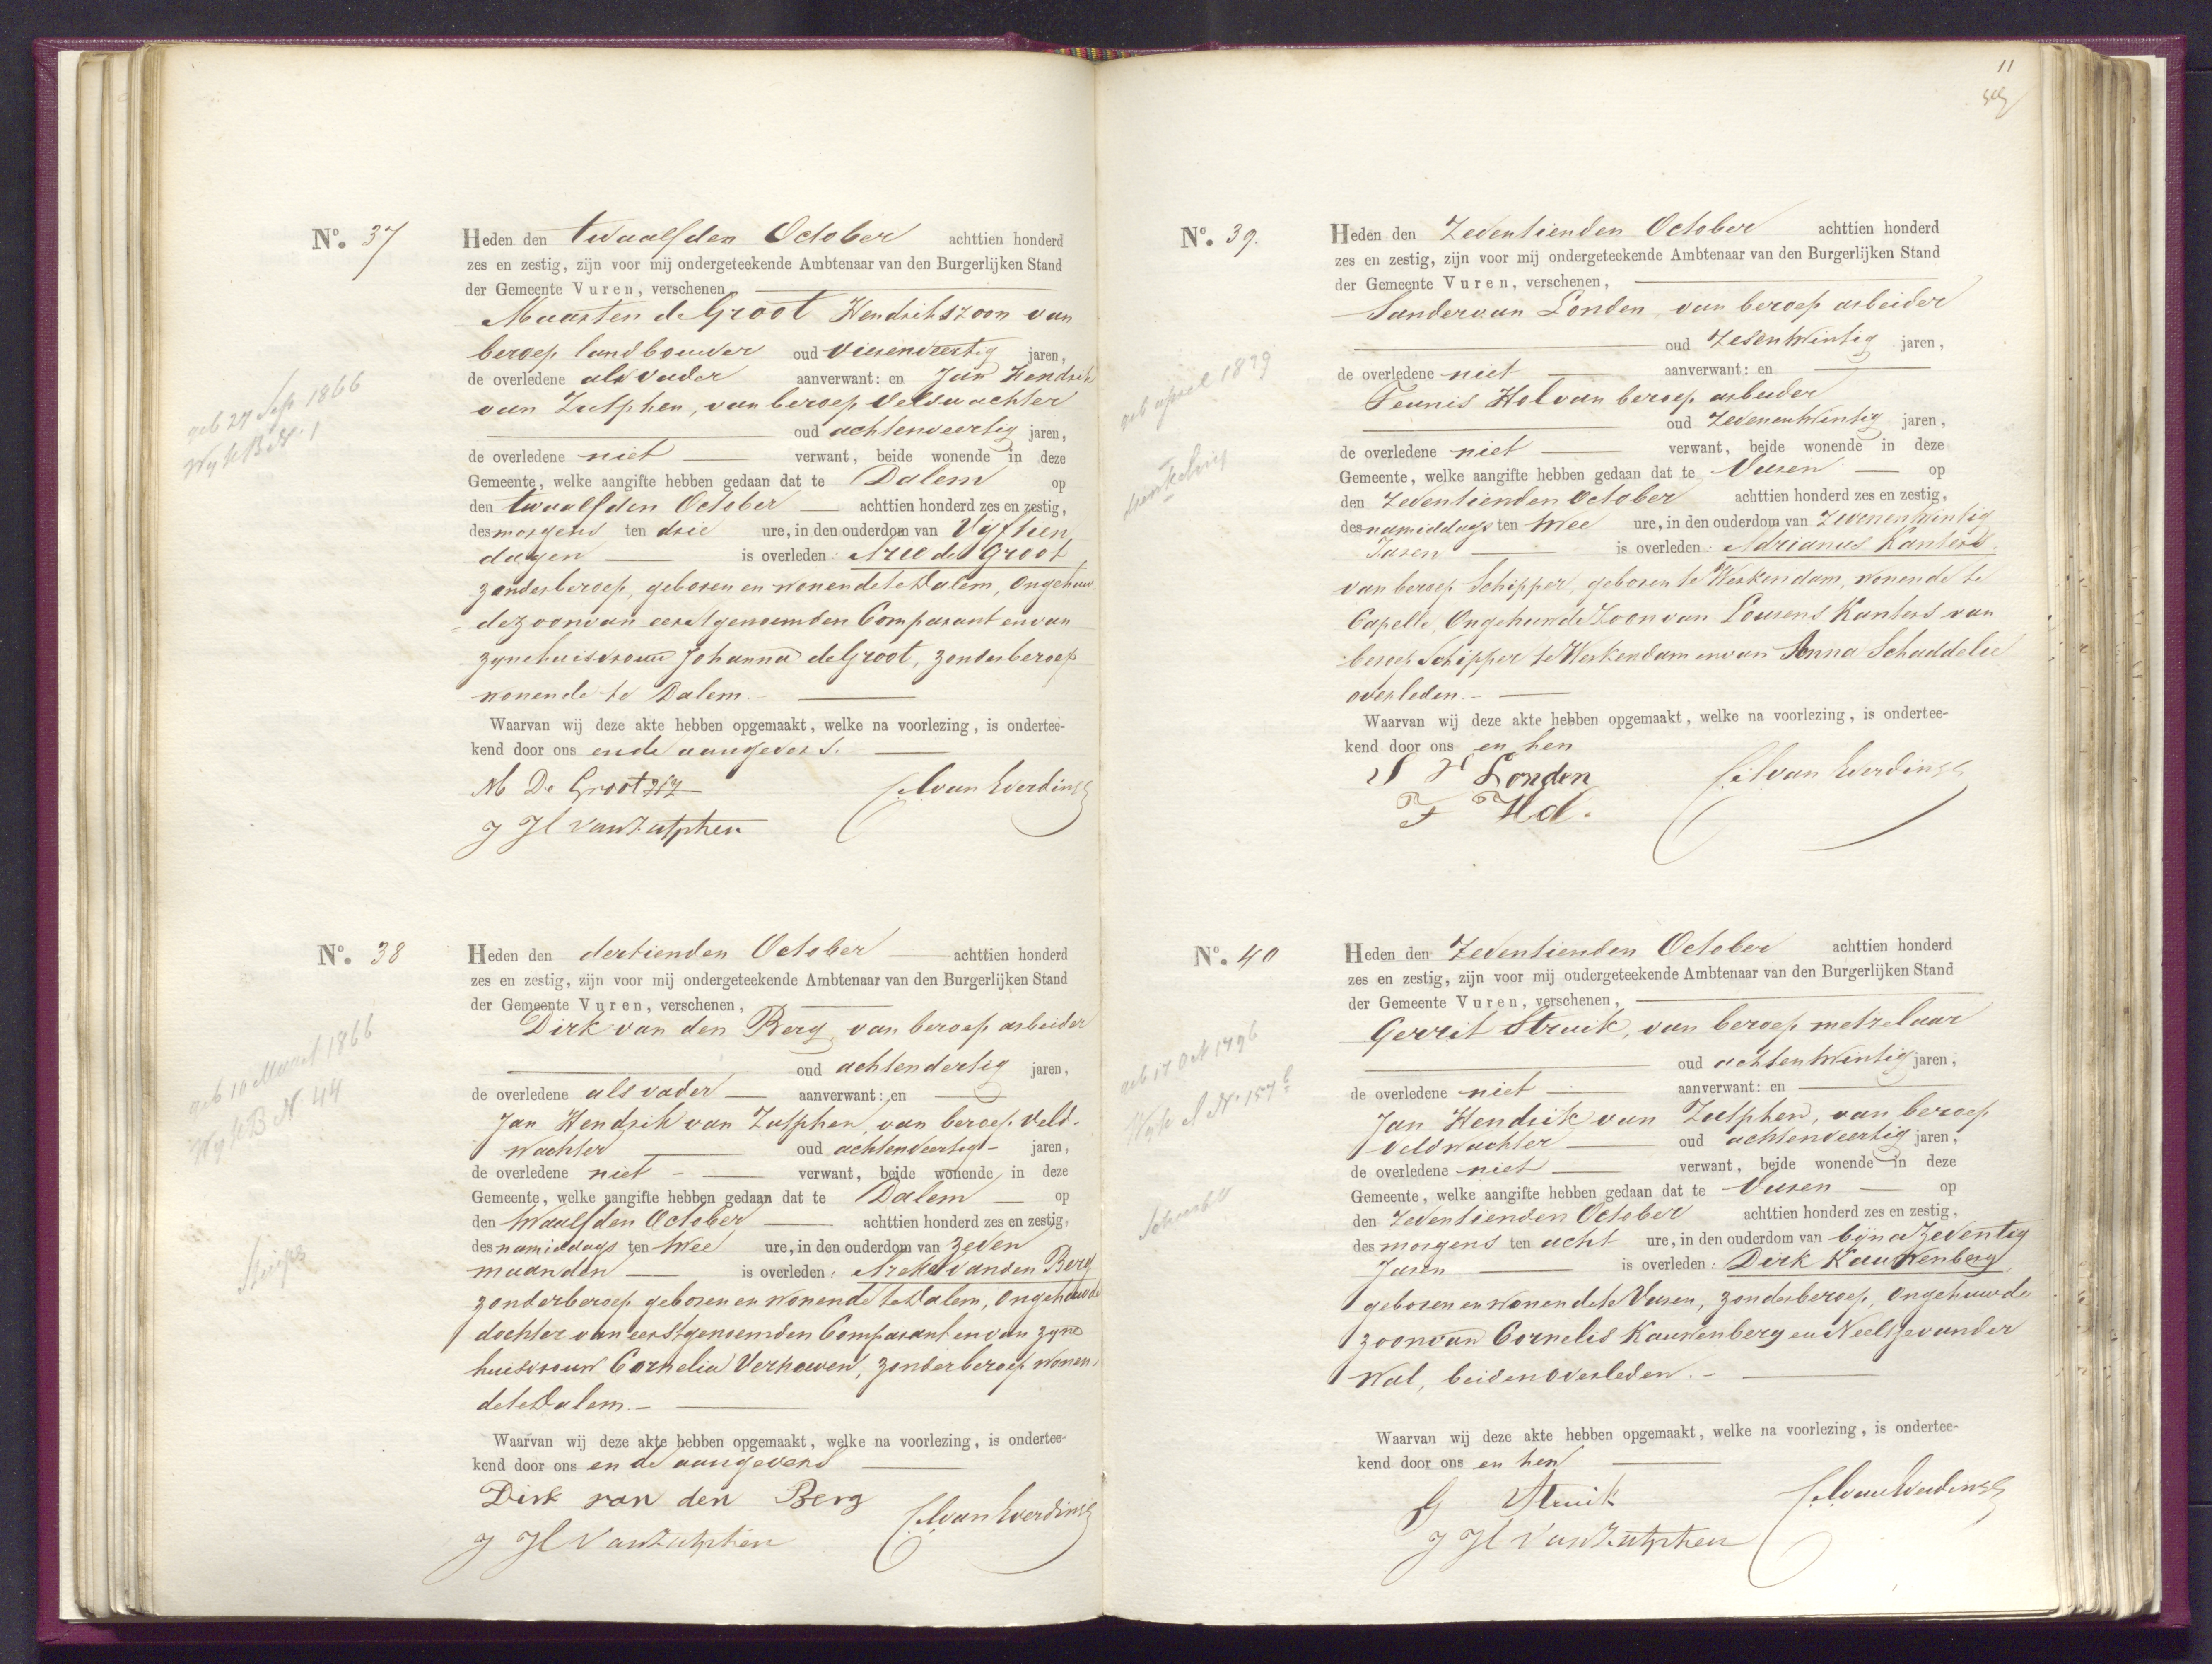 No. 37
Heden den twaalfden October achttien honderd
zes en zestig, zijn voor mij ondergeteekende Ambtenaar van den Burgerlijken Stand
der Gemeente Vuren, verschenen
Maarten de Groot Hendrikszoon van
beroep landbouwer oud vierenveertig jaren,
de overledene als vader aanverwant: en Jan Hendrik
van Zutphen, van beroep Veldwachter
oud achtenveertig jaren,
de overledene niet verwant, beide wonende in deze
Gemeente, welke aangifte hebben gedaan dat te Dalem op
den twaalfden October achttien honderd zes en zestig,
des morgens ten drie ure, in den ouderdom van Vyftien
dagen is overleden: Arie de Groot
zonder beroep, geboren en wonende te Dalem, Ongehuw-
de zoon van eerstgenoemden Comparant en van
zyne huisvrouw Johanna de Groot, zonder beroep
wonende te Dalem.
Waarvan wij deze akte hebben opgemaakt, welke na voorlezing, is ondertee-
kend door ons en de aangevers.
M De Groot Hz
J H van Zutphen
geb 27 Sep 1866
Wyk B N. 1
No. 38
Heden den dertienden October achttien honderd
zes en zestig, zijn voor mij ondergeteekende Ambtenaar van den Burgerlijken Stand
der Gemeente Vuren, verschenen,
Dirk van den Berg van beroep arbeider
oud achtendertig jaren,
de overledene als vader aanverwant: en
Jan Hendrik van Zutphen, van beroep Veld-
wachter oud achtenveertig jaren,
de overledene niet verwant, beide wonende in deze
Gemeente, welke aangifte hebben gedaan dat te Dalem op
den twaalfden October achttien honderd zes en zestig,
des namiddags ten twee ure, in den ouderdom van zeven
maanden is overleden: van den Berg
zonder beroep geboren en wonende te Dalem, Ongehuwde
dochter van eerstgenoemden Comparant en van zyne
huisvrouw Cornelia Verhoeven, zonder beroep wonen-
de te Dalem.
Waarvan wij deze akte hebben opgemaakt, welke na voorlezing, is ondertee-
kend door ons en de aangevers
Dirk van den Berg
J H van Zutphen
geb 10 Maart 1866
Wyk B N. 44
11
No. 39.
Heden den Zeventienden October achttien honderd
zes en zestig, zijn voor mij ondergeteekende Ambtenaar van den Burgerlijken Stand
der Gemeente Vuren, verschenen,
Sander van Londen van beroep arbeider
oud Zesentwintig jaren,
de overledene niet aanverwant: en
Teunis Hol van beroep arbeider
oud Zevenentwintig jaren,
de overledene niet verwant, beide wonende in deze
Gemeente, welke aangifte hebben gedaan dat te Vuren op
den Zeventienden October achttien honderd zes en zestig,
des namiddags ten twee ure, in den ouderdom van Zevenentwintig
Jaren is overleden: Adrianus Kanters
van beroep Schipper, geboren te Werkendam, wonende te
Capelle, Ongehuwde Zoon van Lourens Kanters van
beroep Schipper te Werkendam en van Anna Schaddelee
overleden.
Waarvan wij deze akte hebben opgemaakt, welke na voorlezing, is ondertee-
kend door ons en hen
S V Londen
T Hol.
geb april 1839
No. 40
Heden den Zeventienden October achttien honderd
zes en zestig, zijn voor mij ondergeteekende Ambtenaar van den Burgerlijken Stand
der Gemeente Vuren, verschenen,
Gerrit Struik, van beroep metzelaar
oud achtentwintig jaren,
de overledene niet aanverwant: en
Jan Hendrik van Zutphen, van beroep
Veldwachter oud achtenveertig jaren,
de overledene niet verwant, beide wonende in deze
Gemeente, welke aangifte hebben gedaan dat te Vuren op
den Zeventienden October achttien honderd zes en zestig,
des morgens ten acht ure, in den ouderdom van byna Zeventig
Jaren is overleden: Dirk Kauwenberg
geboren en wonende te Vuren, zonder beroep, Ongehuwde
zoon van Cornelis Kauwenberg en Neeltje van der
Wal, beiden overleden.
Waarvan wij deze akte hebben opgemaakt, welke na voorlezing, is ondertee-
kend door ons en hen
G Struik
J H van Zutphen
geb 17 Oct 1796
Wyk A N. 157 b